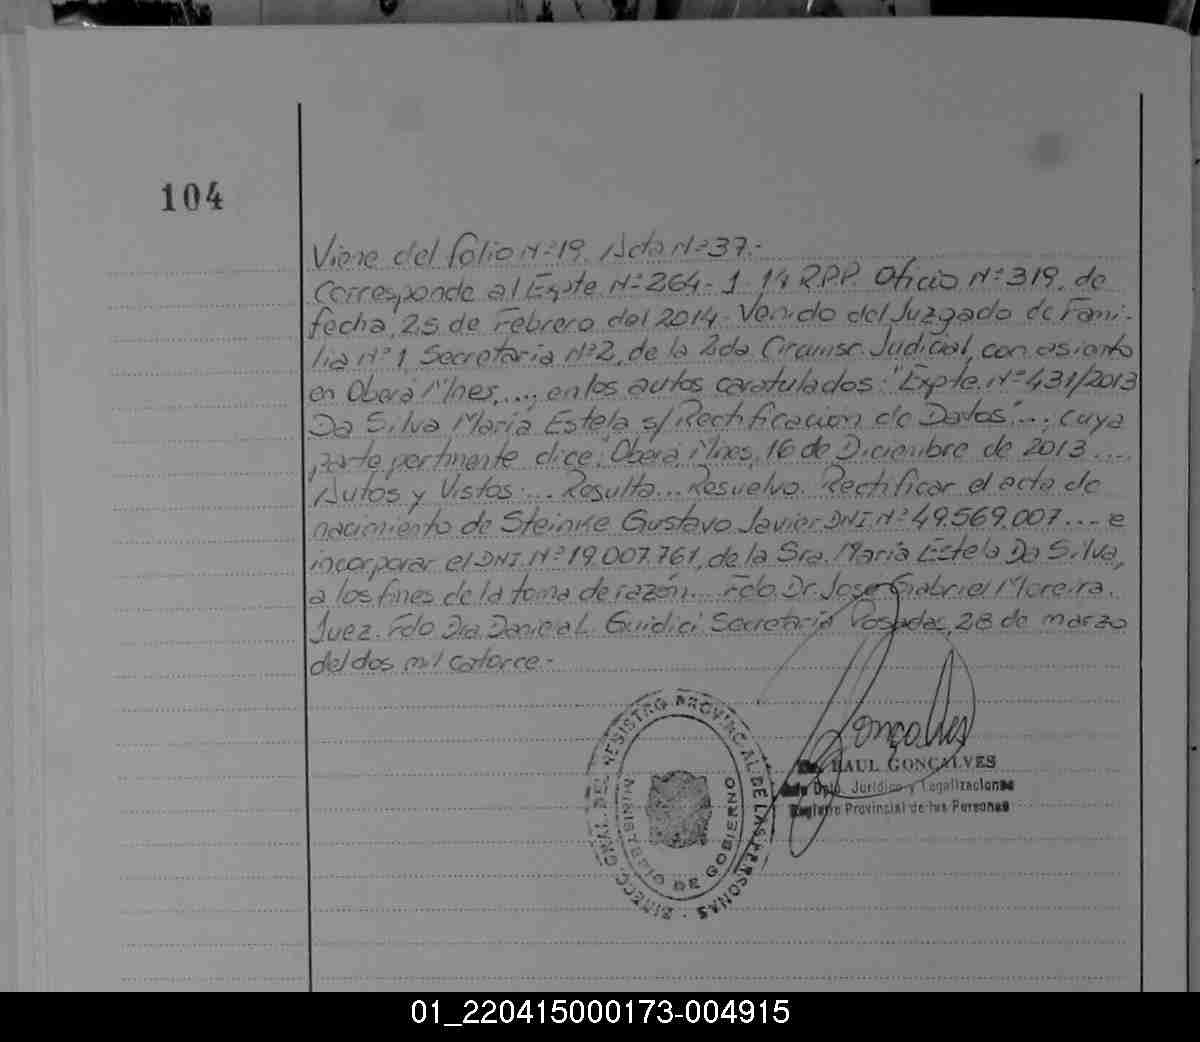 104
Viene del folio Nº 19. Acta Nº 37.-
Corresponde al Expte Nº 264-1-14 R.P.P. Oficio Nº 319, de
fecha, 25 de Febrero del 2014. Venido del Juzgado de Fami-
lia Nº 1, Secretaría Nº 2, de la 2da Circunsc. Judicial, con asiento
en Oberá Mnes, ...., en los autos caratulados: "Expte. Nº 431/2013
Da Silva María Estela s/ Rectificación de Datos"...; cuya
parte pertinente dice; Oberá, Mnes, 16 de Diciembre de 2013....
Autos y Vistos:... Resulta... Resuelvo. Rectificar el acta de
nacimiento de Steinke Gustavo Javier DNI. Nº 49.569.007.... e
incorporar el DNI. Nº 19.007.761, de la Sra. María Estela Da Silva,
a los fines de la toma de razón... Fdo. Dr. Jose Gabriel Moreira.
Juez. Fdo Dra. Daniela L. Guidici. Secretaria Posadas, 28 de marzo
del dos mil catorce.-
Gonçalves
RAUL GONÇALVES
Jefe Dpto. Jurídico y Legalizaciones
Registro Provincial de las Personas
DIRECC. GRAL. DEL REGISTRO PROVINCIAL DE LAS PERSONAS
MINISTERIO DE GOBIERNO
01_220415000173-004915